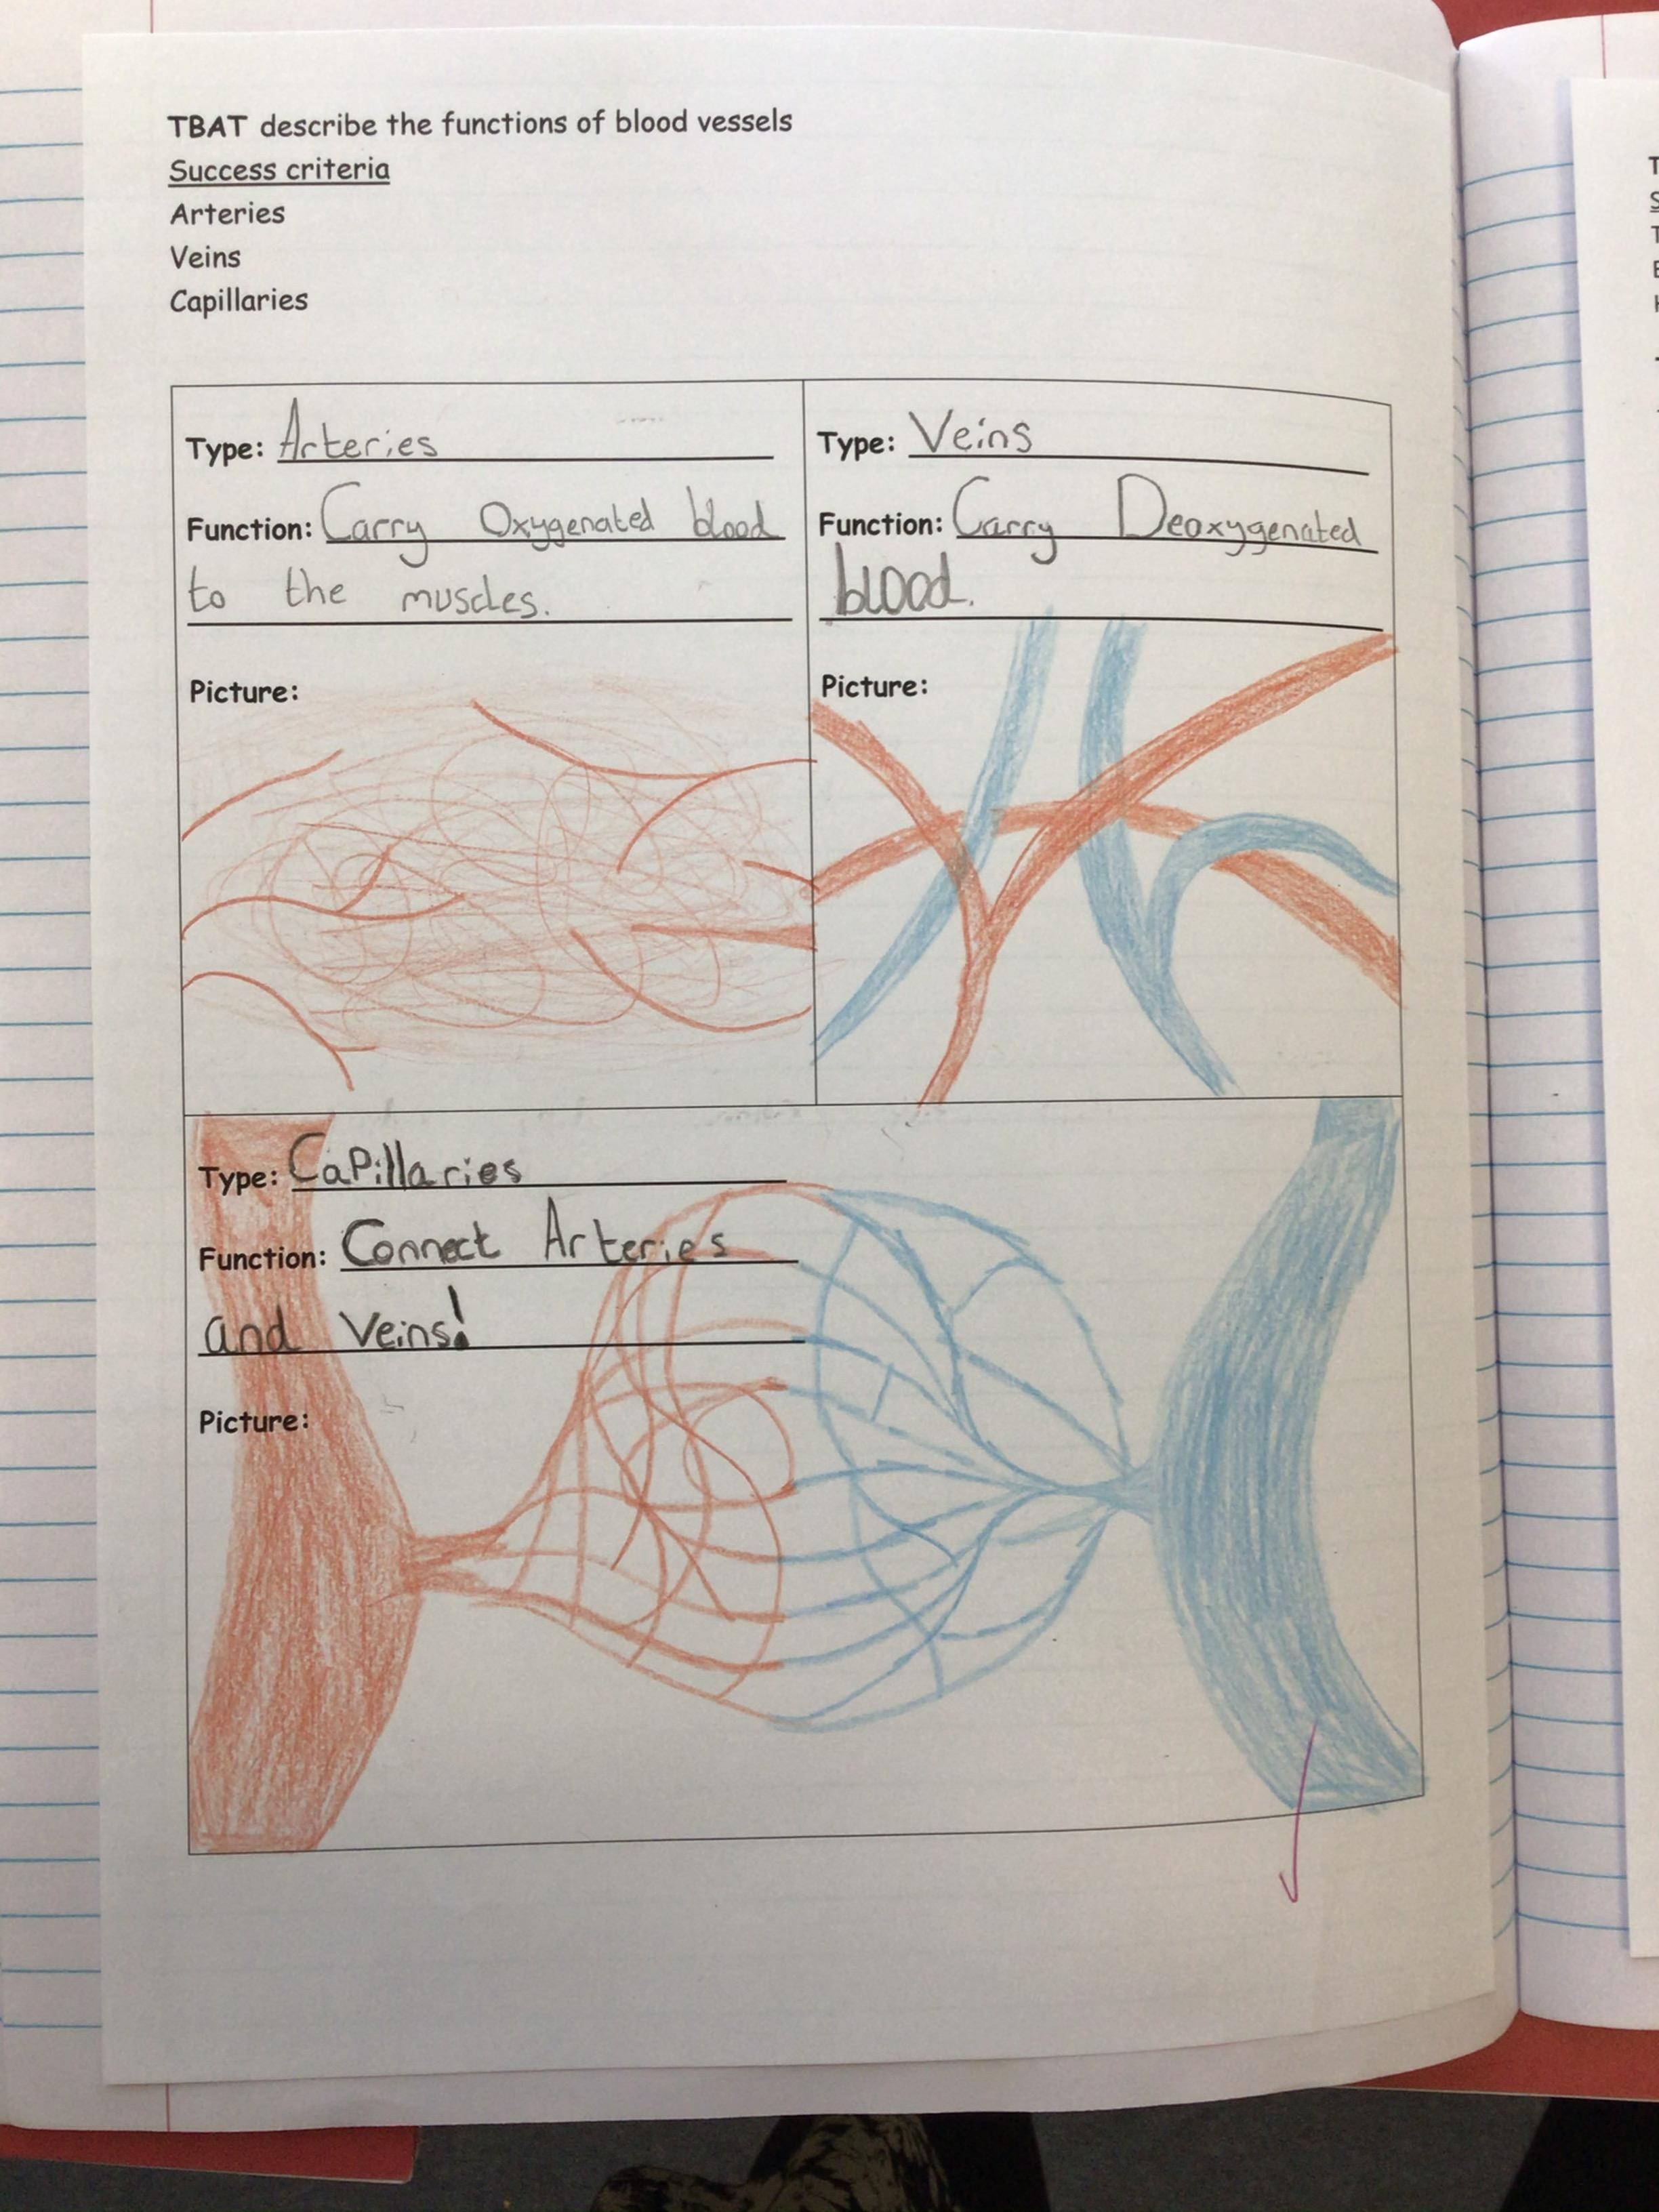 TBAT describe the functions of blood vessels
Success criteria
Arteries
Veins
Capillaries
Type: Arteries
Function: Carry Oxygenated blood
to the muscles.
Picture:
Type: Veins
Function: Carry Deoxygenated
blood.
Picture:
Type: CaPillaries
Function: Connect Arteries
and Veins!
Picture: